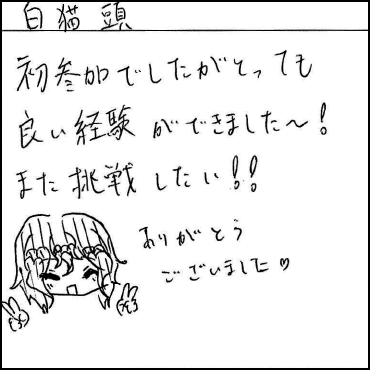 白猫頭
初参加でしたがとっても
良い経験ができました〜!
また挑戦したい!!
ありがとう
ございました♡